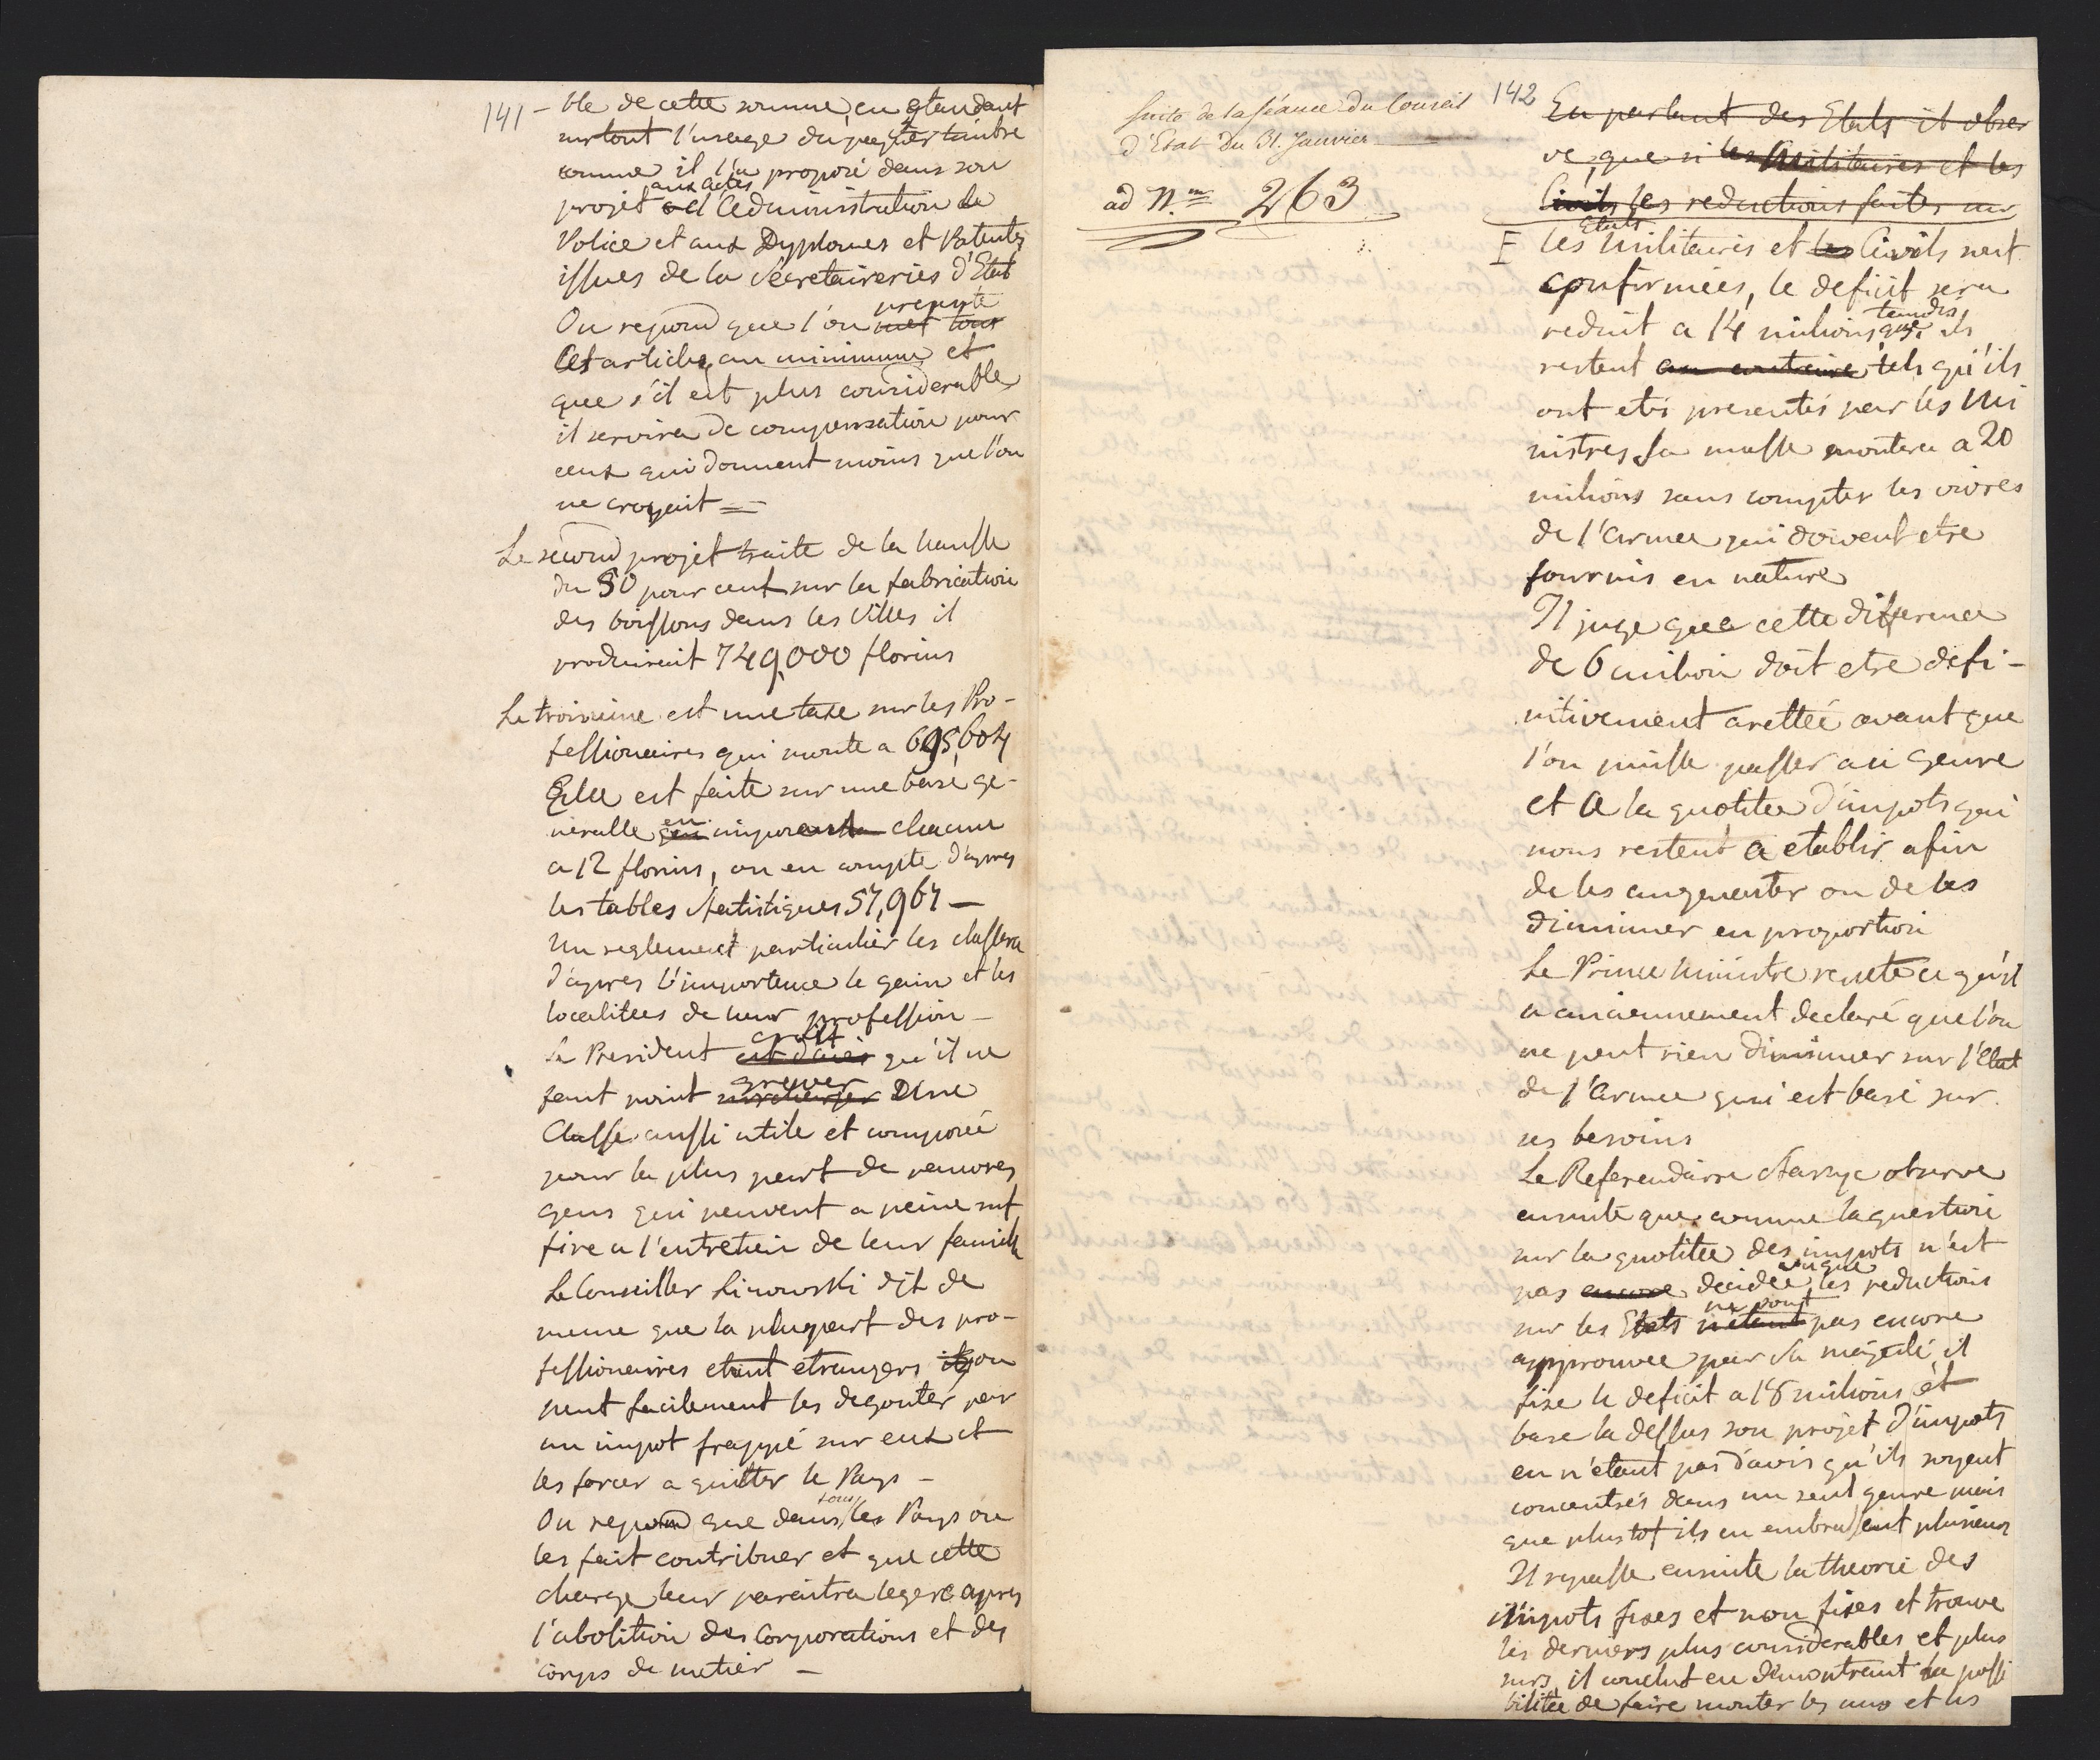 141 – ble de cette somme, en etendant
surtout l'usage du papier timbre
comme il l'a proposé dans son
projet aux actes d'Administration de
Police et aux Dyplomes et Patentes
issues de la Secretaireries d'Etat
On repond que l'on prenne met tous
Cet article au minimum et
que s'il est plus considerable
il servira de compensation pour
ceux qui donnent moins que l'on
ne croyait =
Le second projet traite de la hausse
du 50 pour cent sur la fabrication
des boissons dans les Villes il
produirait 749,000 florins
Le troisieme est une taxe sur les Pro-
fessionaires qui monte a 695,604
Elle est faite sur une base ge-
neralle en imposant chacun
a 12 florins, on en compte d'apres
les tables statistiques 57,967 —
Un reglement particulier les classera
d'apres l'importance le gain et les
localitees de leur profession —
Le President croit est d'avis qu'il ne
faut point grever surcharger Une
Classe aussi utile et composée
pour la plus part de pauvres
gens qui peuvent a peine suf
fire a l'entretien de leur famille
Le Conseiller Linowski dit de
meme que la plupart des pro-
fessionaires etant etrangers ils on
peut facilement les degouter par
un impot frappé sur eux et
les forcer a quitter le Pays —
On repond que dans tous les Pays on
les fait contribuer et que cette
charge leur paraitra legere apres
l'abolition des Corporations et des
corps de metier —
Suite de la séance du Conseil
d'Etat du 31. Janvier
ad N.m 263
142
En parlant des Etats il obser
ve, que si les Militaires et les
Civils les reductions faites sur
F les Etats Militaires et les Civils sont
confirmées, le deficit sera
reduit a 14 milions tandis que s'ils
restent au contraire tels qu'ils
ont etés presentés par les Mi
nistres sa masse montera a 20
milions sans compter les vivres
de l'armee qui doivent etre
fournis en nature
Il juge que cette difference
de 6 milion doit etre defi-
nitivement arettée avant que
l'on puisse passer au genre
et a la quotitee d'impots qui
nous restent a etablir afin
de les augmenter ou de les
diminuer en proportion
Le Prince Ministre repete ce qu'il
a anciennement declaré que l'on
ne peut rien diminuer sur l'etat
de l'armee qui est basé sur
ses besoins
Le Referendaire observe
ensuite que comme la question
sur la quotitee des impots n'est
pas encore decidée, vu que les reductions
sur les Etats ne sont n'etant pas encore
approuvee par Sa majesté, il
fixe le deficit a 18 milions et
base la dessus son projet d'impots
en n'etant pas d'avis qu'ils soyent
concentrés dans un seul genre mais
que plustot ils en embrassent plusieurs
Il repasse ensuite la theorie des
impots fixes et non fixes et trouve
les derniers plus considerables et plus
surs, il conclut en demontrant la possi
bilitée de faire monter les uns et les